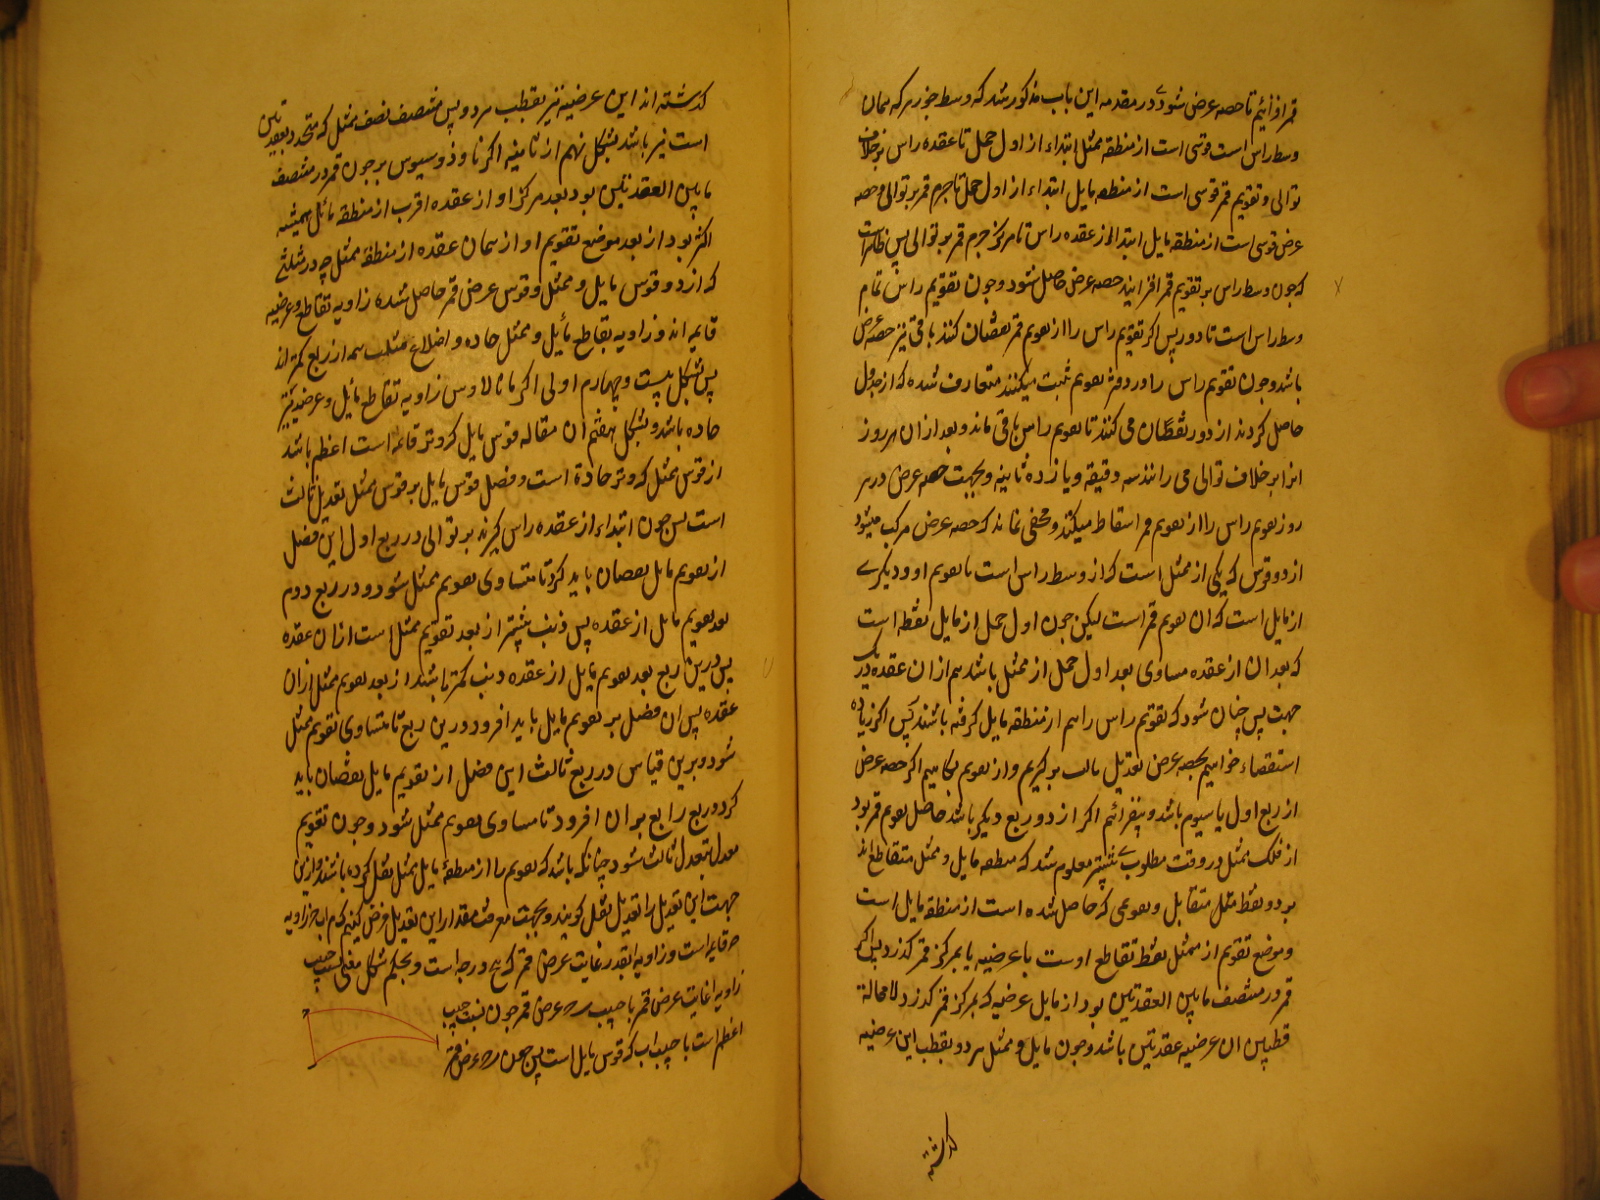 قمر افزائیم تا حصه عرض شود و در مقدمه این باب مذکور شد که وسط جوزهر که همان
وسط راس است قوسی است از منطقه ممثل ابتداء از اول حمل تا عقده راس بر خلاف
توالی و تقویم قمر قوسی است از منطقه مایل ابتداء از اول حمل تا جرم قمر بر توالی و حصه
عرض قوسی است از منطقه مایل ابتدا از عقده راس تا مرکز جرم قمر بر توالی پس ظاهر است
که جون وسط راس بر تقویم قمر افزایند حصه عرض حاصل شود و جون تقویم راس تمام
وسط راس است تا دور پس اکر تقویم راس را از تقویم قمر نقصان کنند باقی نیز حصه عرض
باشد و جون تقویم راس را در دفتر تقویم ثبت میکنند متعارف شده که از جدول
حاصل کردند از دور نقصان می کنند تا تقویم راس باقی ماند و بعد از ان هر روز
انرا بر خلاف توالی می رانند سه دقیقه و یازده ثانیه و بجهت حصه عرض در هر
روز تقویم راس را از تقویم قمر اسقاط میکنند و مخفی نماند که حصه عرض مرکب میشود
از دو قوس که یکی از ممثل است که از وسط راس است تا تقویم او و دیکری
از مایل است که ان تقویم قمر است لیکن جون اول حمل از مایل نقطه است
که بعد ان از عقده مساوی بعد اول حمل از ممثل باشد هم از ان عقده
جهت پس چنان شود که تقویم راس را هم از منطقه مایل کرفته باشند پس اکر زیاده
استقصاء خواهیم بحصه عرض تعدیل ثالث بر کیریم و از تقویم بکاهیم اکر حصه عرض
از ربع اول یا سیوم باشد و بیفزائیم اکر از دو ربع دیکر باشد حاصل تقویم قمر بود
از فلک ممثل در وقت مطلوب بیشتر معلوم شد که منطقه مایل و ممثل متقاطع اند
بر دو نقطه متقابل و تقویمی که حاصل شده است از منطقه مایل است
و موضع تقویم از ممثل نقطه تقاطع اوست با عرضیه یا بمرکز قمر کذرد پس اکر
قمر در منتصف مابین العقدتین بود از مایل عرضیه که بمرکز قمر کذرد لا محالة
قطبین ان عرضیه عقدتین باشد و جون مایل و ممثل هر دو بقطب این عرضیه
کذشته
کذشته اند این عرضیه نیز بقطب هر دو پس منتصف نصف ممثل که متحدد بعقدتین
است نیز باشد بشکل نهم از ثانیه اکر ثاوذوسیوس بر جون قمر در منتصف
مابین العقدتین بود بعد مرکز او از عقده اقرب از منطقه مائل همیشه
اکثر بود از بعد موضع تقویم او از همان عقده از منطقه ممثل چه در مثلثی
که از دو قوس مایل و ممثل و قوس عرض قمر حاصل شده زاویه تقاطع و عرضیه
قایمه اند و زاویه تقاطع مأیل و ممثل حاده و اضلاع مثلث همه از ربع کمتر اند
پس بشکل بیست و چهارم اولی اکر مانالاوس زاویه تقاطع مایل و عرضیه نیز
حاده باشد و بشکل هفتم ان مقاله قوس مایل که وتر قائمه است اعظم باشد
از قوس ممثل که وتر حادة است و فضل قوس مایل بر قوس ممثل تعدیل ثالث
است پس جون ابتداء از عقده راس کیرند بر توالی در ربع اول این فضل
از تقویم مایل نقصان باید کرد تا متساوی تقویم ممثل شود و در ربع دوم
بعد تقویم مایل از عقده پس ذنب بیشتر از بعد تقویم ممثل است از ان عقده
پس درین ربع بعد تقویم مایل از عقده ذنب کمتر باشد از بعد تقویم ممثل از ان
عقده پس ان فضل بر تقویم مایل باید افزود درین ربع تا متساوی تقویم ممثل
شود و برین قیاس در ربع ثالث این فضل از تقویم مایل نقصان باید
کرد و ربع رابع بر ان افزود تا مساوی تقویم ممثل شود و جون تقویم
معدل بتعدیل ثالث شود چنانکه باشد که تقویم را از منطقه مایل بممثل نقل کرده باشند و ازین
جهت این تعدیل را تعدیل نقل کویند و بجهت معرفت مقدار این تعدیل فرض کنیم که م اب ح زاویه
ح قایمه است و زاویه ا بقدر غایت عرض قمر که پنج درجه است و بحکم شکل مغنی نسبت جیب
زاویه ا غایت عرض قمر با جیب ب ح عرض قمر جون نسبت جیب
اعظم است با جیب اب که قوس مایل است پس جون ب ح عرض قمر